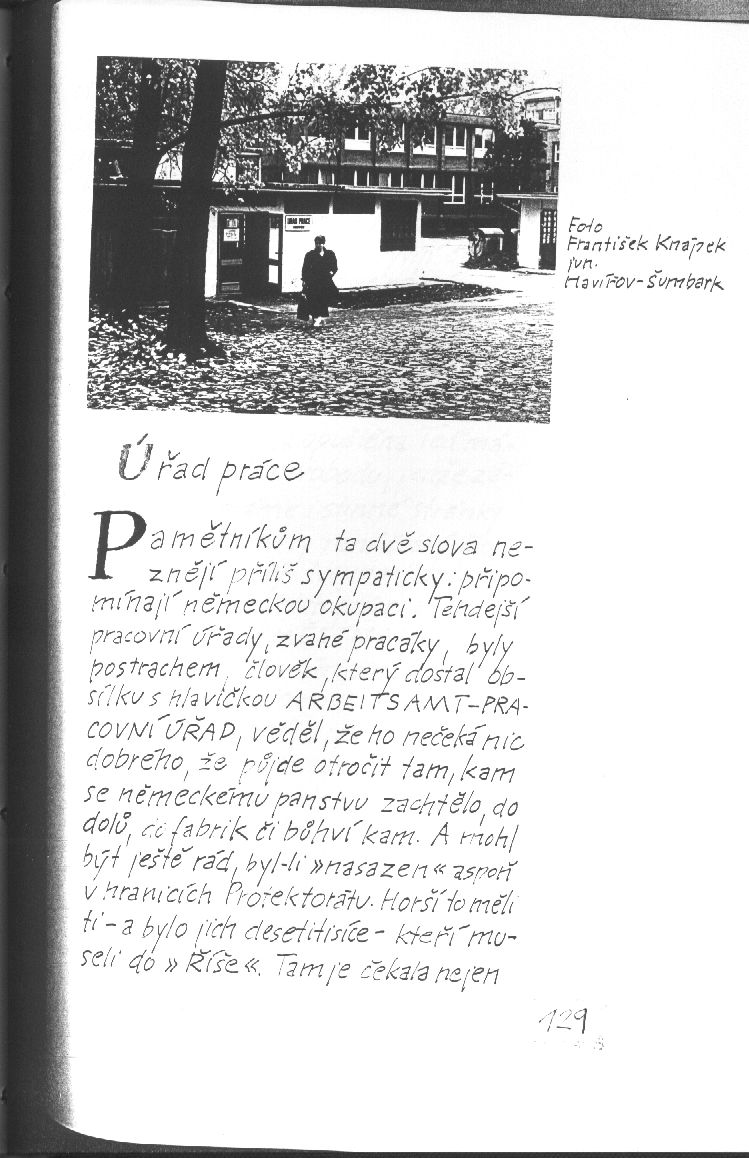 ÚŘAD PRÁCE
Foto
František Knapek
jun.
Havířov-Šumbark
Úřad práce
Pamětníkům ta dvě slova ne-
znějí příliš sympaticky: připo-
mínají německou okupaci. Tehdejší
pracovní úřady, zvané pracáky, byly
postrachem, člověk, který dostal ob-
sílku s hlavičkou ARBEITSAMT-PRA-
COVNÍ ÚŘAD, věděl, že ho nečeká nic
dobrého, že půjde otročit tam, kam
se německému panstvu zachtělo, do
dolů, do fabrik či bůhví kam. A mohl
být ještě rád, byl-li »nasazen« aspoň
v hranicích Protektorátu. Horší to měli
ti - a bylo jich desetitisíce - kteří mu-
seli do »Říše«. Tam je čekala nejen
129